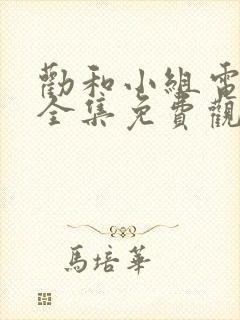 勸和小組電
全集免費觀
馬培華